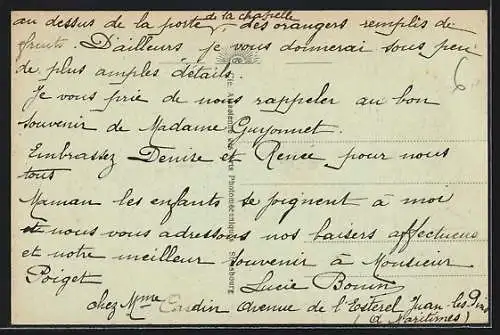 au dessus de la porte de la chapelle, des orangers remplis de
fruits. D'ailleurs je vous donnerai sous peu
de plus amples détails.
Je vous prie de nous rappeler au bon
souvenir de Madame Guyonnet.
Embrassez Denise et Renée pour nous
tous
Maman les enfants se joignent à moi
et nous vous adressons nos baisers affectueux
et notre meilleur souvenir à Monsieur
Poiget
Lucie Bouin
chez Mme Cardin Avenue de l'Esterel Juan-les-Pins
(A. Maritimes)
6
Cie Alsacienne des Arts Photomécaniques Strasbourg